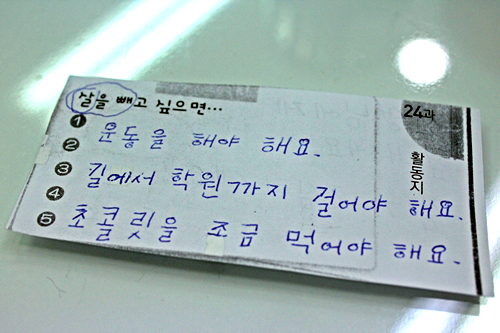 살을 빼고 싶으면...
24과
활동지
1 운동을 해야 해요.
2
3 길에서 학원까지 걸어야 해요.
4
5 초콜릿을 조금 먹어야 해요.